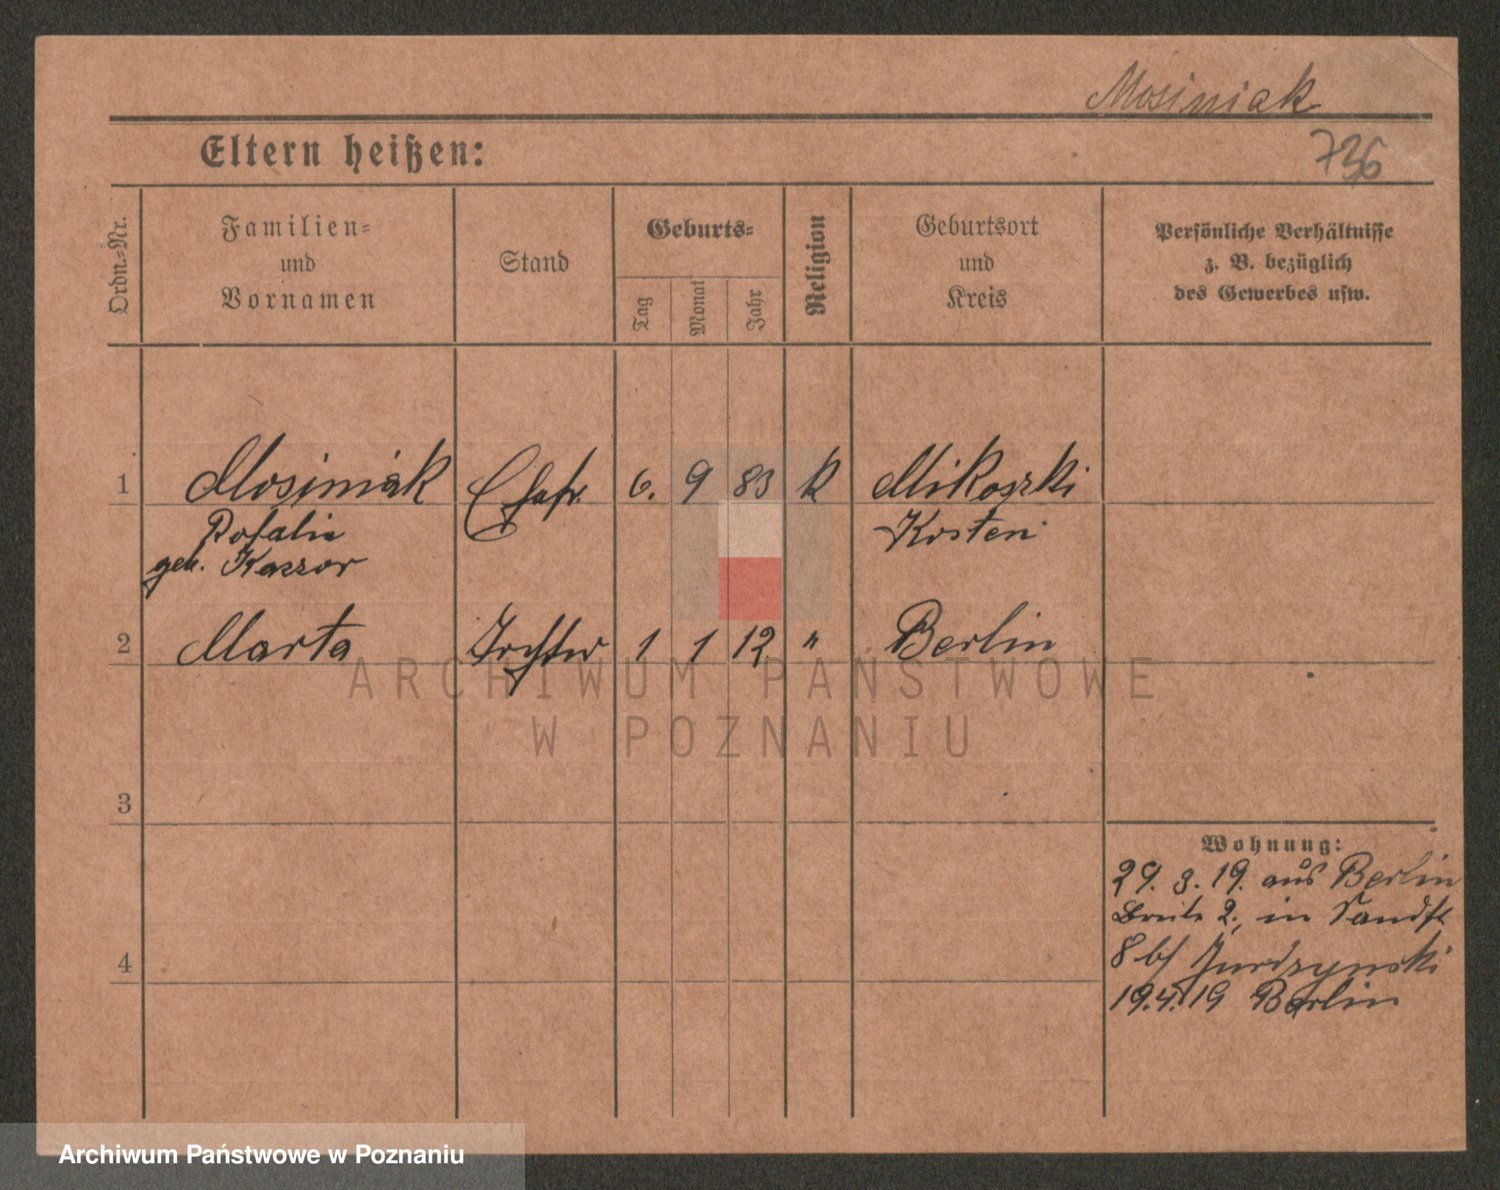 Mosiniak
736
Eltern heißen:
Ordn.=Nr.
Familien=
und
Vornamen
Stand
Geburts=
Tag
Monat
Jahr
Religion
Geburtsort
und
Kreis
Persönliche Verhältnisse
z. B. bezüglich
des Gewerbes usw.
1 Mosiniak Ehefr. 6. 9 83 k Mikoszki
Rosalie Kosten
geb. Kaszor
2 Marta Tochter 1 1 12 " Berlin
ARCHIWUM PAŃSTWOWE
W POZNANIU
3
Wohnung:
29. 3. 19. aus Berlin
Breite 2., in Sandst
4
8 b/ Jurdzynski
19.4.19 Berlin
Archiwum Państwowe w Poznaniu